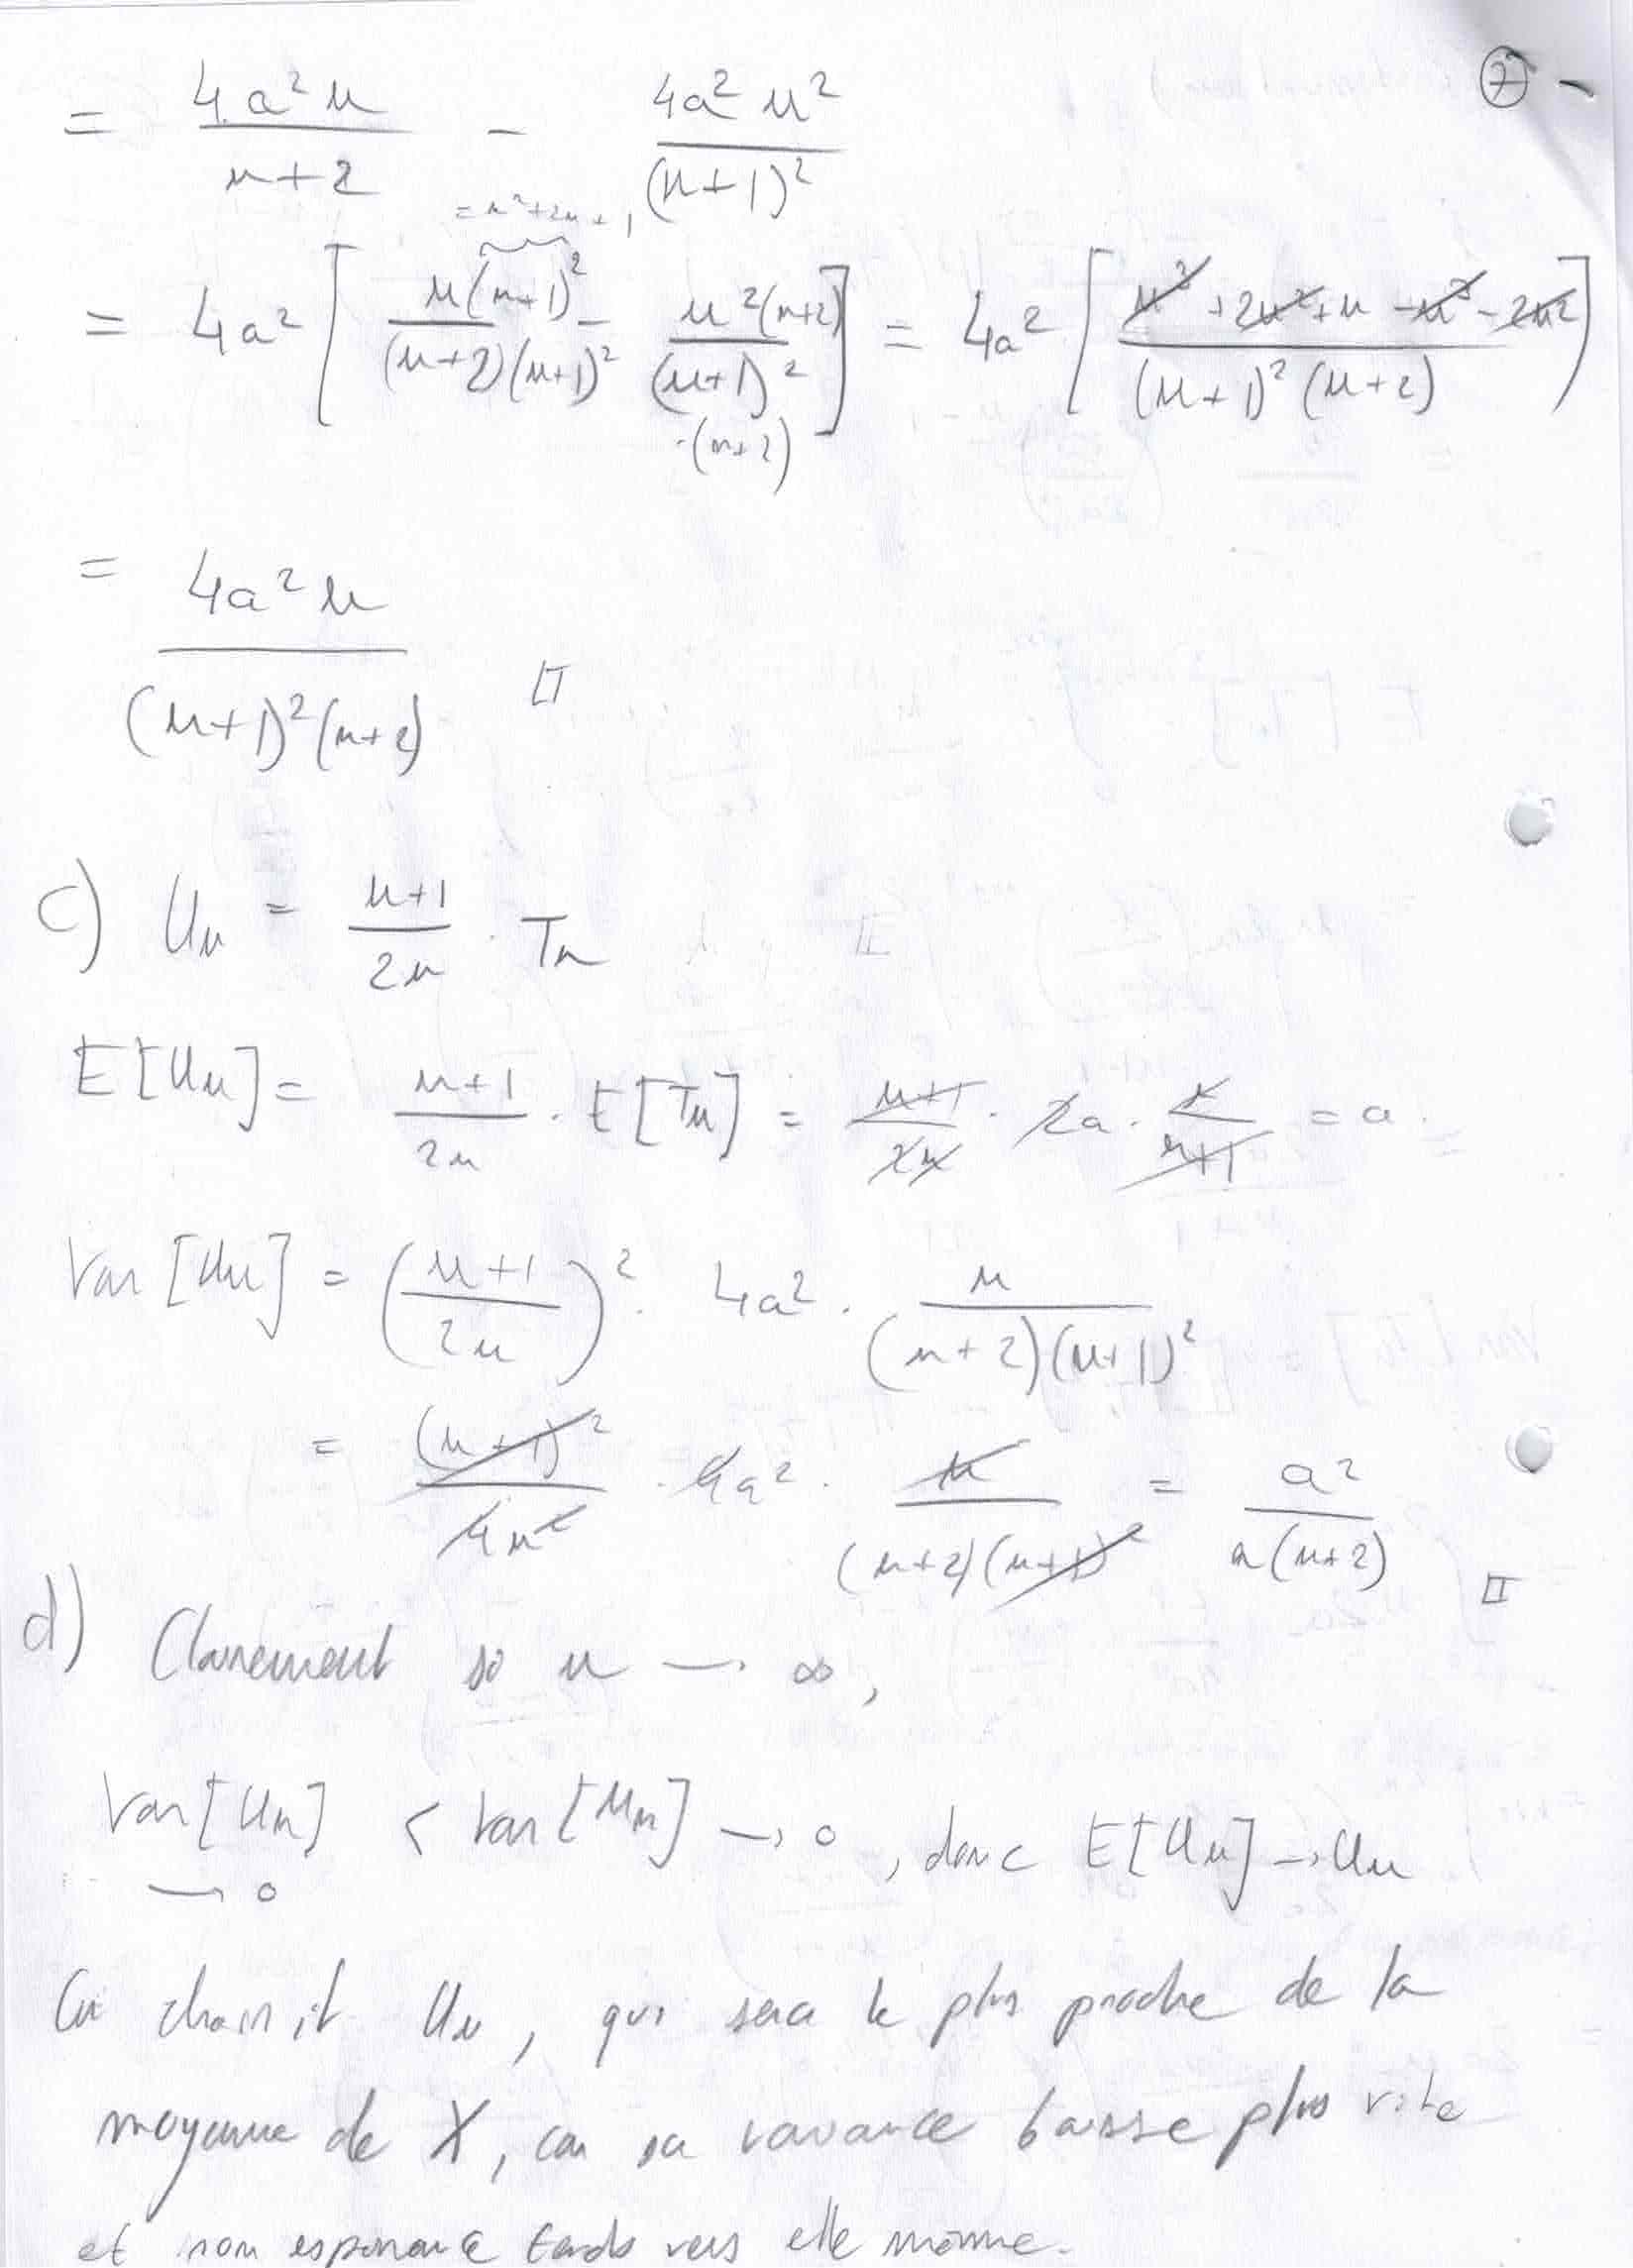 7
= 4a²n / (n+2) - 4a²n² / (n+1)²
= n²+2n+1
= 4a² [ n(n+1)² / (n+2)(n+1)² - n²(n+2) / (n+1)²·(n+2) ] = 4a² [ n³+2n²+n-n³-2n² / (n+1)²(n+2) ]
= 4a²n / (n+1)²(n+2) □
c) Un = n+1 / 2n · Tn
E[Un] = n+1 / 2n · E[Tn] = n+1 / 2n · 2a · n / n+1 = a
Var[Un] = (n+1 / 2n)² · 4a² · n / (n+2)(n+1)²
= (n+1)² / 4n² · 4a² · n / (n+2)(n+1)² = a² / n(n+2) □
d) Clairement si n → ∞,
Var[Un] < Var[Mn] → 0, donc E[Un] → Un
→ 0
On choisit Un, qui sera le plus proche de la
moyenne de X, car sa variance baisse plus vite
et son esperance tends vers elle même.